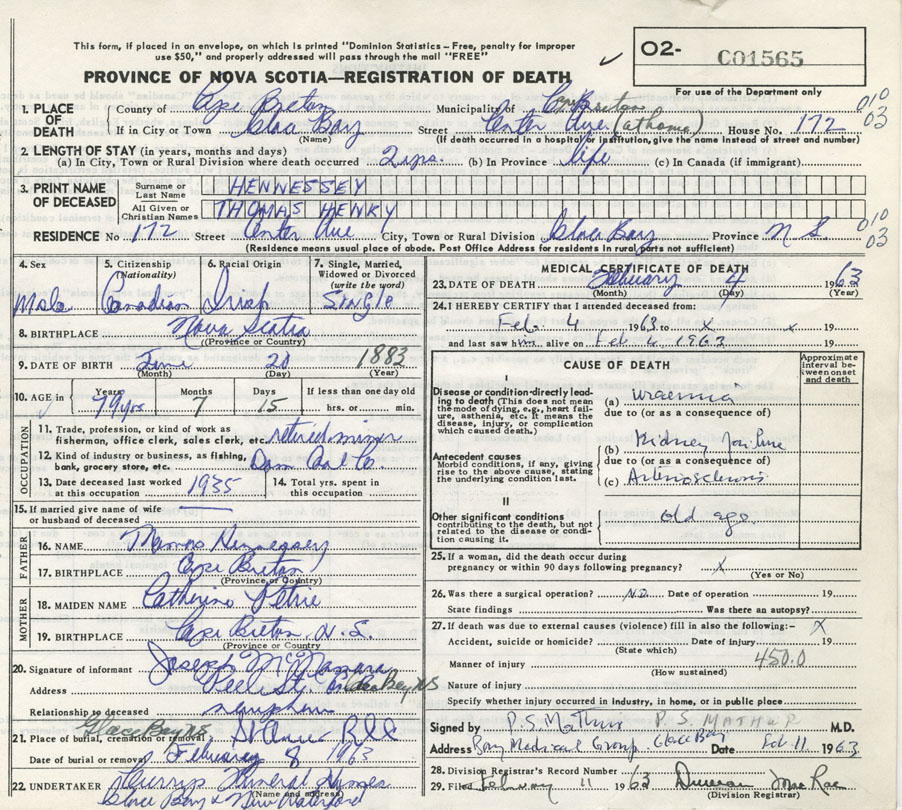 This form, if placed in an envelope, on which is printed "Dominion Statistics – Free, penalty for improper
use $50," and properly addressed will pass through the mail "FREE"
O2- C01565
For use of the Department only
PROVINCE OF NOVA SCOTIA—REGISTRATION OF DEATH
1. PLACE OF DEATH
County of Cape Breton Municipality of Cape Breton 010
If in City or Town Glace Bay Street Center Ave (at home) House No. 172 03
(Name) (If death occurred in a hospital or institution, give the name instead of street and number)
2. LENGTH OF STAY (in years, months and days)
(a) In City, Town or Rural Division where death occurred 2 yrs. (b) In Province life (c) In Canada (if immigrant)
3. PRINT NAME OF DECEASED
Surname or Last Name HENNESSEY
All Given or Christian Names THOMAS HENRY
RESIDENCE No 172 Street Center Ave City, Town or Rural Division Glace Bay Province N S 010 03
(Residence means usual place of abode. Post Office Address for residents in rural parts not sufficient)
4. Sex Male
5. Citizenship (Nationality) Canadian
6. Racial Origin Irish
7. Single, Married, Widowed or Divorced (write the word) Single
8. BIRTHPLACE Nova Scotia
(Province or Country)
9. DATE OF BIRTH June 20 1883
(Month) (Day) (Year)
10. AGE in Years 79 yrs Months 7 Days 15 If less than one day old
hrs. or min.
OCCUPATION
11. Trade, profession, or kind of work as
fisherman, office clerk, sales clerk, etc. retired miner
12. Kind of industry or business, as fishing,
bank, grocery store, etc. Dom Coal Co.
13. Date deceased last worked
at this occupation 1935
14. Total yrs. spent in
this occupation
15. If married give name of wife
or husband of deceased
FATHER
16. NAME Thomas Hennessey
17. BIRTHPLACE Cape Breton
(Province or Country)
MOTHER
18. MAIDEN NAME Catherine Petrie
19. BIRTHPLACE Cape Breton, N.S.
(Province or Country
20. Signature of informant Joseph McNamara
Address Peele St. Glace Bay NS
Relationship to deceased nephew
Glace Bay NS
21. Place of burial, cremation or removal St Anne
Date of burial or removal February 8 1963
22. UNDERTAKER Curry's Funeral Homes
(Name and address)
Glace Bay & New Waterford
MEDICAL CERTIFICATE OF DEATH
23. DATE OF DEATH February 4 1963
(Month) (Day) (Year)
24. I HEREBY CERTIFY that I attended deceased from:
Feb. 4 1963 to x x 19
and last saw him alive on Feb 4, 1963 19
CAUSE OF DEATH
Approximate interval between onset and death
I
Disease or condition directly leading to death (This does not mean the mode of dying, e.g., heart failure, asthenia, etc. It means the disease, injury, or complication which caused death.)
(a) uraemia
due to (or as a consequence of)
Antecedent causes
Morbid conditions, if any, giving rise to the above cause, stating the underlying condition last.
(b) Kidney failure
due to (or as a consequence of)
(c) Arteriosclerosis
II
Other significant conditions
contributing to the death, but not related to the disease or condition causing it.
old age
25. If a woman, did the death occur during
pregnancy or within 90 days following pregnancy? x
(Yes or No)
26. Was there a surgical operation? No Date of operation 19
State findings Was there an autopsy?
27. If death was due to external causes (violence) fill in also the following:– x
Accident, suicide or homicide? Date of injury 19
(State which)
Manner of injury 450.0
(How sustained)
Nature of injury
Specify whether injury occurred in industry, in home, or in public place
Signed by P.S. Mathur P. S. MATHUR M.D.
Address Bay Medical Group Glace Bay Date Feb. 11 1963
28. Division Registrar's Record Number
29. Filed February 11 1963 Duncan MacRae
(Division Registrar)